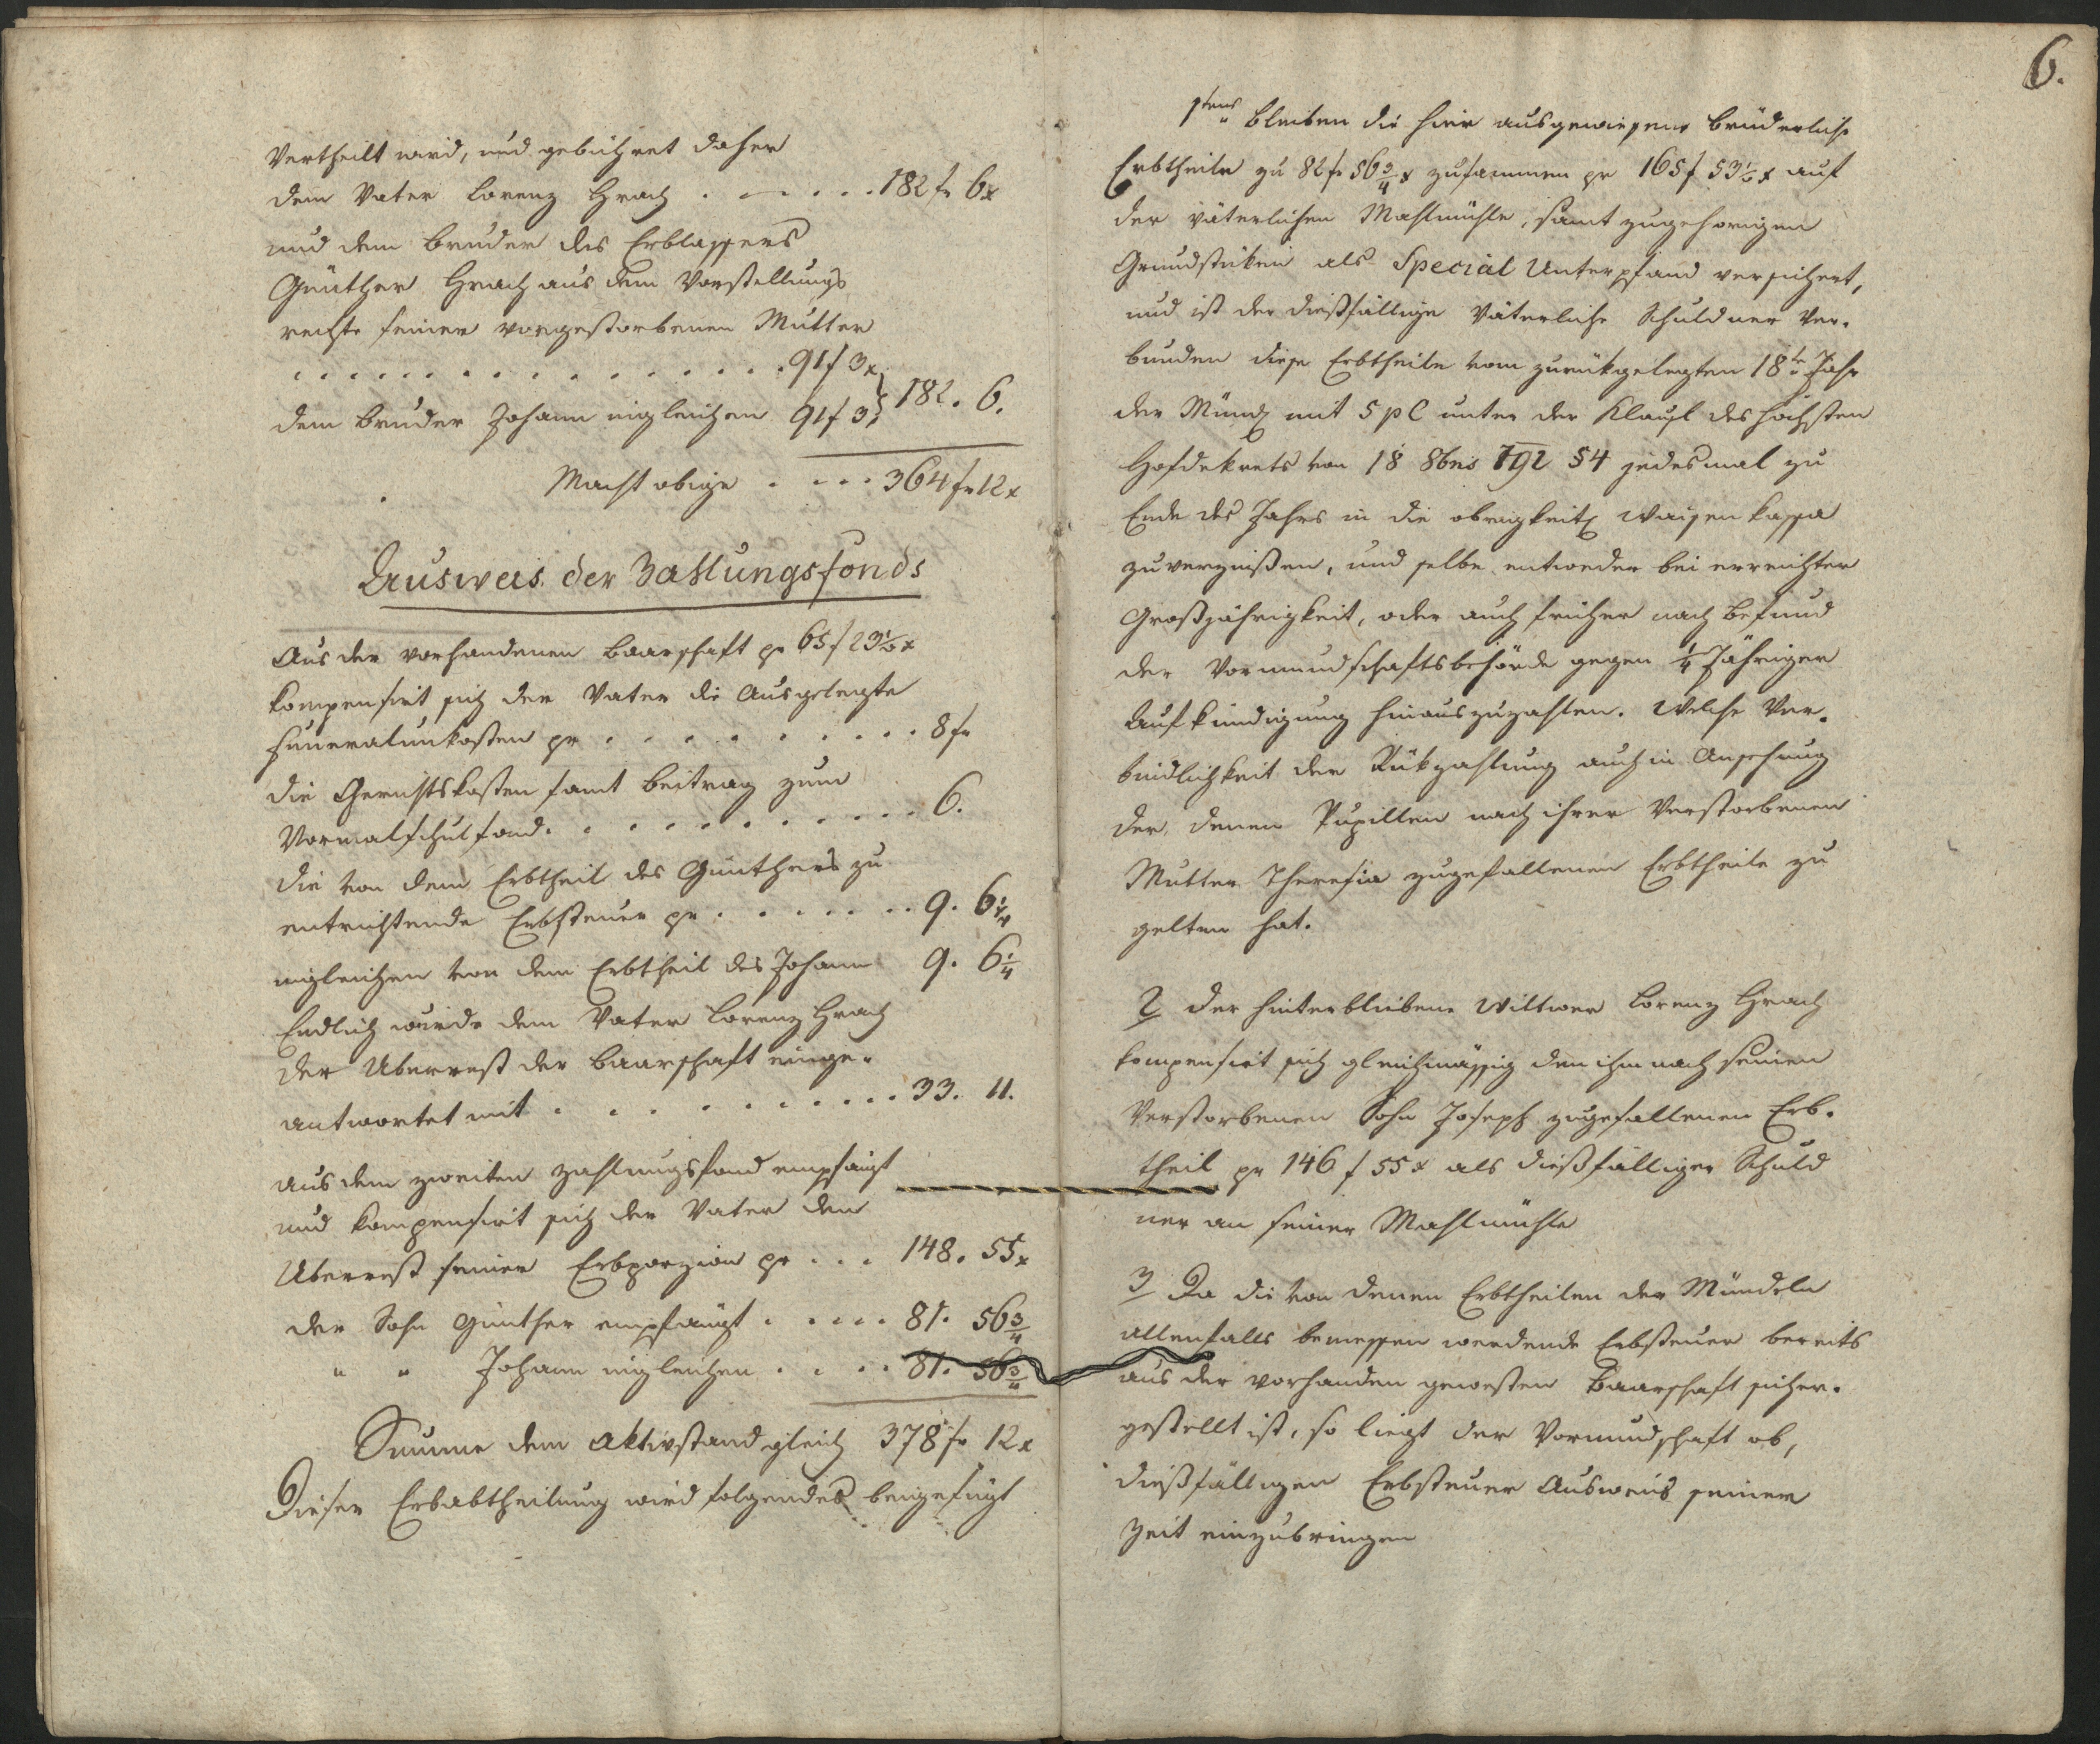 vertheilt wird, und gebühret daher
dem Vater Lorenz Hrach . — . . . 182 fr 6x
und dem Bruder des Erblassers
Günther Hrach aus dem Vorstellungs
rechte seiner vorgestorbenen Mutter
. . . . . . . . . . . . . . . . 91f 3x
dem Bruder Johann ingleichen 91f 3 } 182. 6.
Macht obige . . . . 364 fr 12x
Ausweis der Zahlungsfonds
Aus der vorhandenen Baarschaft pr 65f 23½x
kompensirt sich der Vater die Ausgelegte
Funeralunkosten pr . . . . . . . . . . 8 fr
die Gerichtskosten samt Beitrag zum
Normalschulfond . . . . . . . . . . . 6.
die von dem Erbtheil des Günthers zu
entrichtende Erbsteuer pr . . . . . . . 9. 6¼
ingleichen von dem Erbtheil des Johann 9. 6¼
Endlich wurde dem Vater Lorenz Hrach
der Uberrest der Baarschaft einge-
antwortet mit . . . . . . . . . . . 33. 11.
aus dem zweiten Zahlungsfond empfängt
und kompensirt sich der Vater den
Uberrest seiner Erbporzion pr . . . 148. 55x
der Sohn Günther empfängt . . . . . 81. 56¾
" " Johann ingleichen . . . . 81. 56¾
Summe dem Aktivstand gleich 378 fr 12x
Dieser Erbabtheilung wird folgendes beigefügt
6.
1tens bleiben die hier ausgewiesene brüderliche
Erbtheile zu 82 fr 56¾x zusammen pr 165f 53½x auf
der väterlichen Mahlmühle, samt zugehorigen
Grundstüken als Special Unterpfand versichert,
und ist der dießfällige Väterliche Schuldner ver-
bunden diese Erbtheile vom zurükgelegten 18te Jahr
der Münd mit 5 pC unter der Klausl des höchsten
Hofdekrets von 18 8bris 792 §4 jedesmal zu
Ende des Jahrs in die obrigkeitl Waisen kassa
zu verzinßen, und selbe entweder bei erreichter
Großjährigkeit, oder auch früher nach Befund
der Vormundschaftsbehörde gegen ¼ Jähriger
Aufkündigung hinauszuzahlen. Welche Ver-
bindlichkeit der Rükzahlung auch in Ansehung
der denen Pupillen nach ihrer Verstorbenen
Mutter Theresia zugefallenen Erbtheile zu
gelten hat.
2 Der hinterbliebene Wittwer Lorenz Hrach
kompensirt sich gleichmässig den ihm nach seinen
Verstorbenen Sohn Joseph zugefallenen Erb-
theil pr 146 f 55x als dießfälliger Schuld
ner an seiner Mahlmühle
3 Da die von denen Erbtheilen der Mündeln
allenfalls bemessen werdende Erbsteuer bereits
aus der vorhanden gewesten Baarschaft sicher-
gestellt ist, so liegt der Vormundschaft ob,
dießfälligen Erbsteuer Ausweis seiner
Zeit einzubringen